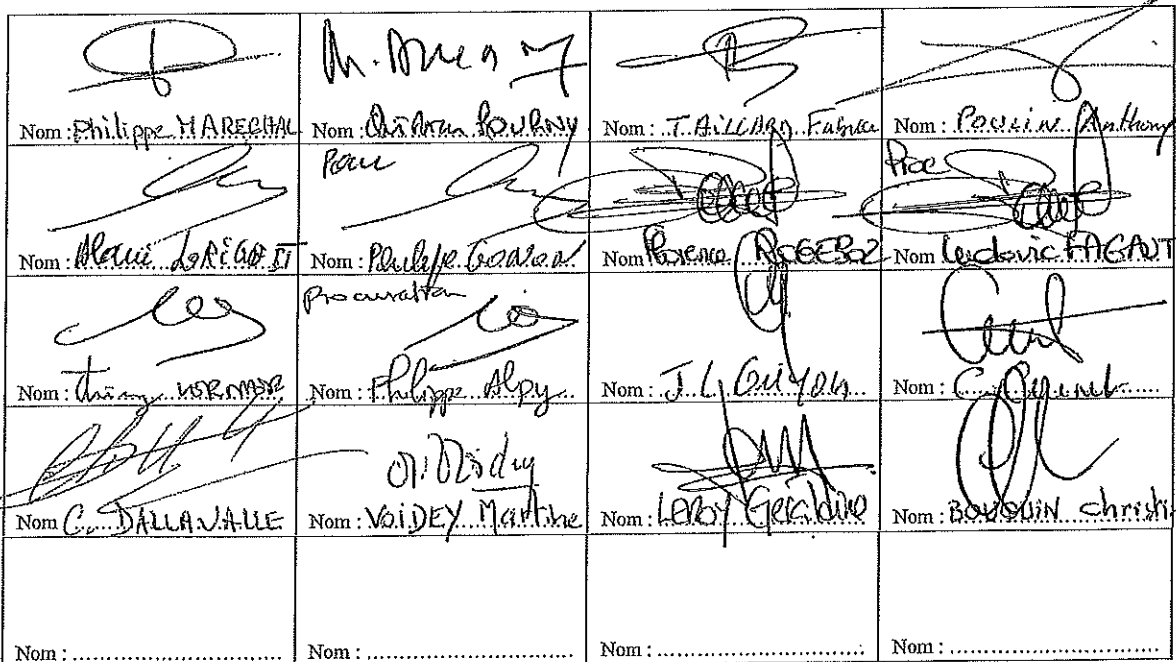 Nom : Philippe MARECHAL
Nom : POURNY
Nom : TAILLARD Fabrice
Nom : POULIN Anthony
Nom : Alain LORIGUET
Pour
Nom : Philippe
Nom : Florence ROGEBOZ
Proc
Nom : Ludovic FAGAUT
Nom : Thierry VERNIER
Procuration
Nom : Philippe Alpy
Nom : J.L GUYON
Nom : C.
Nom : C. DALLAVALLE
Nom : VOIDEY Martine
Nom : LEROY Géraldine
Nom : BOUQUIN Christi
Nom : ..............................
Nom : ..............................
Nom : ..............................
Nom : ..............................